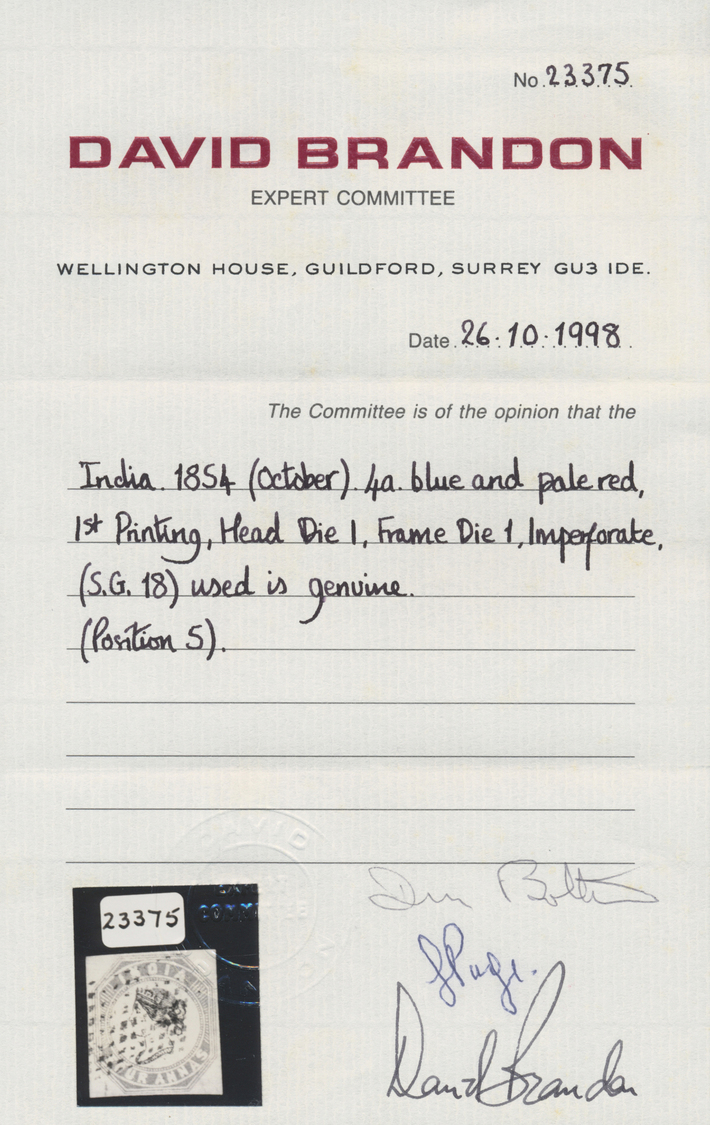 No. 23375
DAVID BRANDON
EXPERT COMMITTEE
WELLINGTON HOUSE, GUILDFORD, SURREY GU3 IDE.
Date 26.10.1998
The Committee is of the opinion that the
India. 1854 (October). 4a. blue and pale red,
1st Printing, Head Die I, Frame Die 1, Imperforate,
(S.G. 18) used is genuine.
(Position 5).
DAVID
23375
INDIA
ANNAS
David Brandon